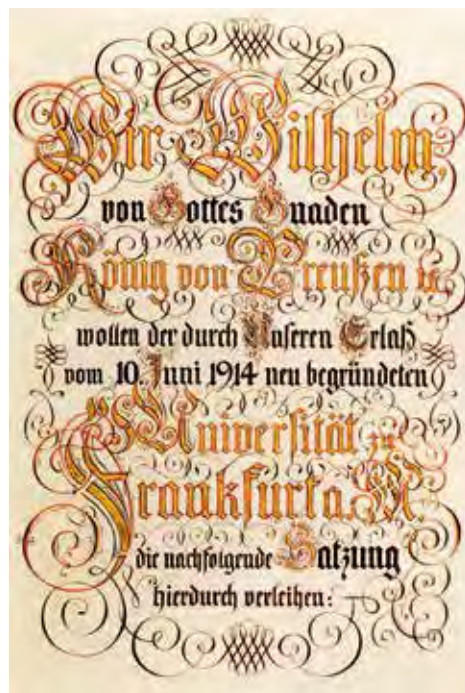 Wir Wilhelm,
von Gottes Gnaden
König von Preußen u.
wollen der durch Unseren Erlaß
vom 10. Juni 1914 neu begründeten
Universität zu
Frankfurt a. M
die nachfolgende Satzung
hierdurch verleihen: